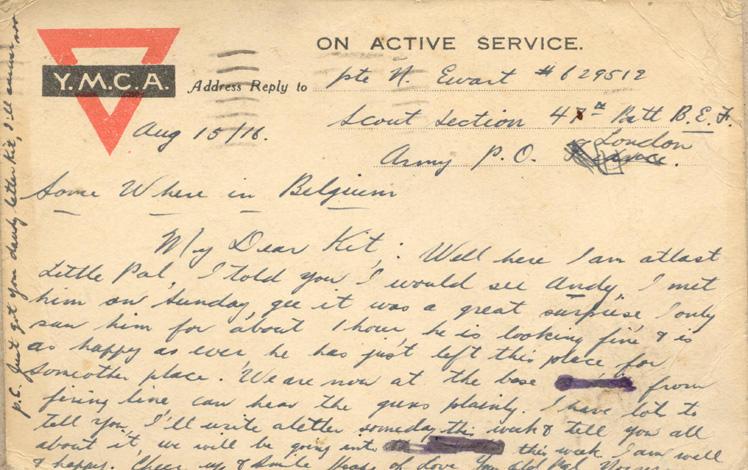 ON ACTIVE SERVICE.
Y.M.C.A.
Address Reply to Pte N. Ewart #629512
Aug 15/16.
Scout Section 47th Batt B.E.F.
London
Army P.O.
Some Where in Belgium
My Dear Kit; Well here I am atlast
Little Pal, I told you I would see Andy, I met
him on Sunday, gee it was a great surprise I only
saw him for about 1 hour he is looking fine & is
as happy as ever he has just left this place for
someother place. We are now at the base from
firing line can hear the guns plainly. I have lot to
tell you, I'll write aletter someday this week & tell you all
about it, we will be going into this week I am well
& happy. Cheer up & smile of love Your old Pal
P.C. Just got you dandy letter Kit, I'll answer